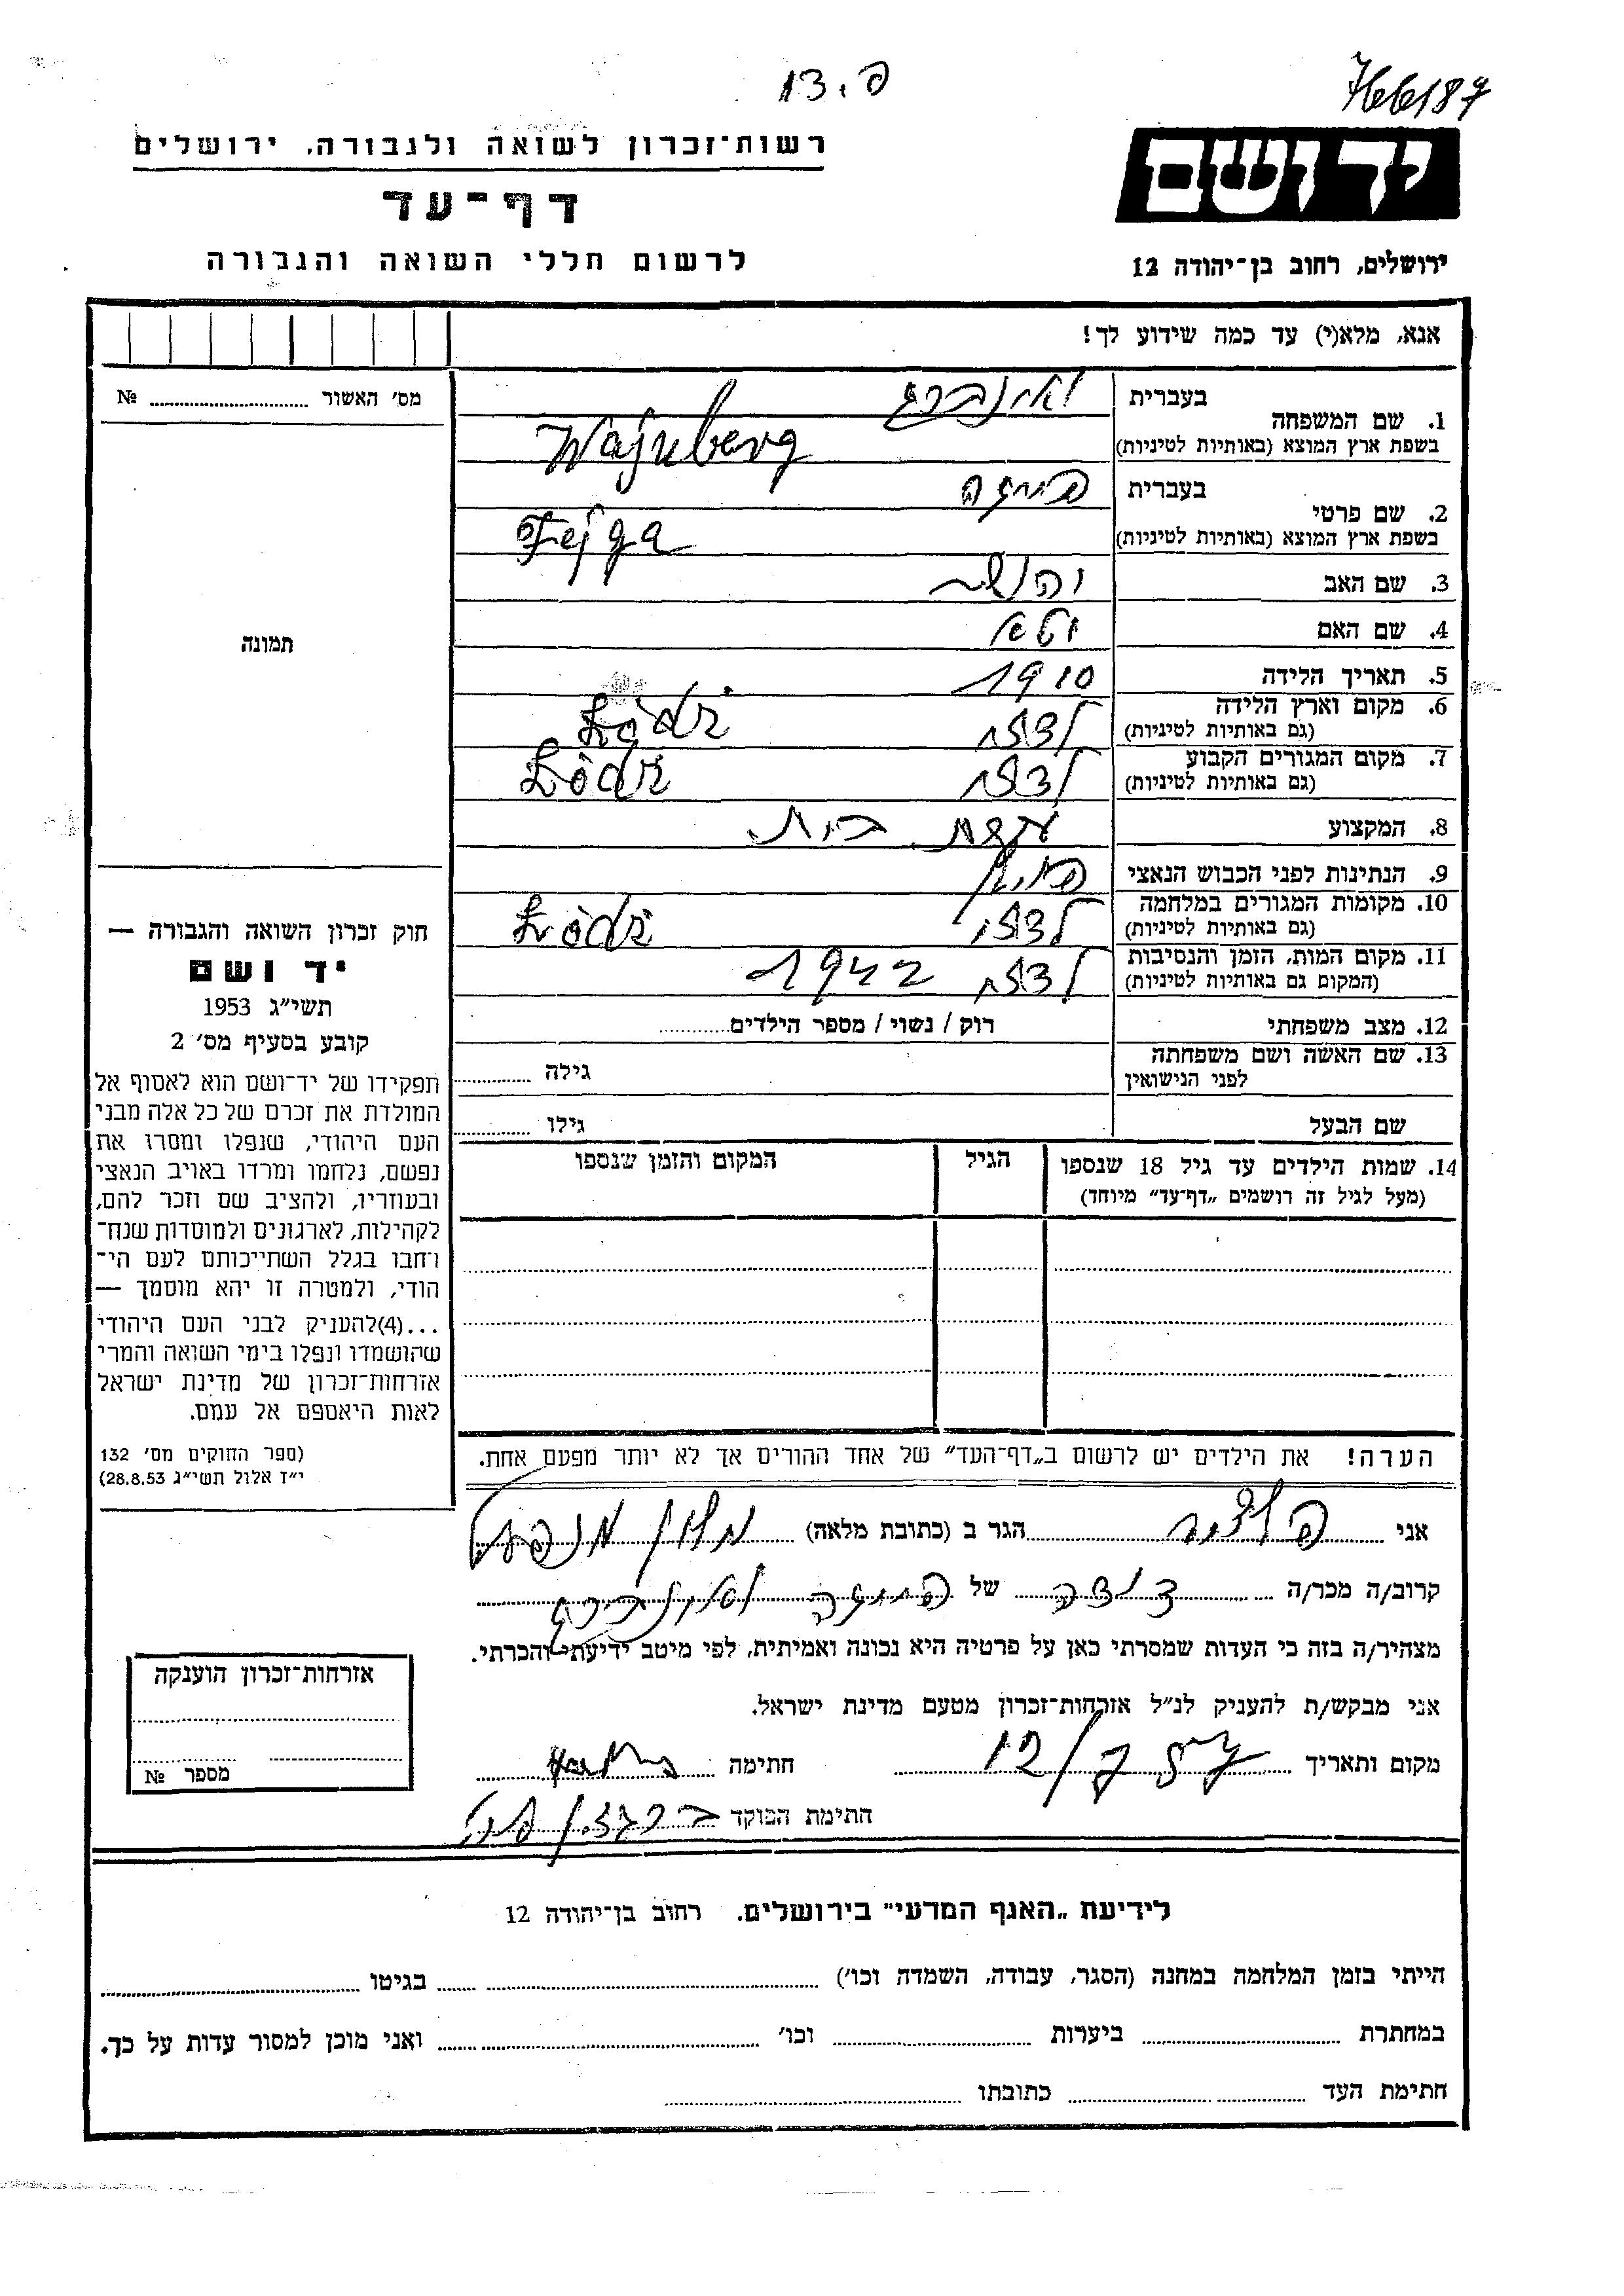 13. פ
766187
יד ושם
רשות־זכרון לשואה ולגבורה, ירושלים
דף־עד
לרשום חללי השואה והגבורה
ירושלים, רחוב בן־יהודה 12
אנא, מלא(י) עד כמה שידוע לך!
מס׳ האשור № 
1. שם המשפחה בעברית ואינברג
בשפת ארץ המוצא (באותיות לטיניות) Wajnberg
2. שם פרטי בעברית פייגה
בשפת ארץ המוצא (באותיות לטיניות) Fejga
3. שם האב
4. שם האם יטא
5. תאריך הלידה 1910
6. מקום וארץ הלידה לודז׳ Łódź
(גם באותיות לטיניות)
7. מקום המגורים הקבוע לודז׳ Łódź
(גם באותיות לטיניות)
8. המקצוע עקרת בית
9. הנתינות לפני הכבוש הנאצי פולין
10. מקומות המגורים במלחמה לודז׳ Łódź
(גם באותיות לטיניות)
11. מקום המות, הזמן והנסיבות לודז׳ 1942
(המקום גם באותיות לטיניות)
12. מצב משפחתי רוק / נשוי / מספר הילדים
13. שם האשה ושם משפחתה
לפני הנישואין גילה
שם הבעל גילו
14. שמות הילדים עד גיל 18 שנספו הגיל המקום והזמן שנספו
(מעל לגיל זה רושמים „דף־עד״ מיוחד)
תמונה
חוק זכרון השואה והגבורה —
יד ושם
תשי״ג 1953
קובע בסעיף מס׳ 2
תפקידו של יד־ושם הוא לאסוף אל
המולדת את זכרם של כל אלה מבני
העם היהודי, שנפלו ומסרו את
נפשם, נלחמו ומרדו באויב הנאצי
ובעוזריו, ולהציב שם וזכר להם,
לקהילות, לארגונים ולמוסדות שנח־
רחבו בגלל השתייכותם לעם הי־
הודי, ולמטרה זו יהא מוסמך —
...(4)להעניק לבני העם היהודי
שהושמדו ונפלו בימי השואה והמרי
אזרחות־זכרון של מדינת ישראל
לאות היאספם אל עמם.
(ספר החוקים מס׳ 132
י״ז אלול תשי״ג 28.8.53)
הערה! את הילדים יש לרשום ב„דף־העד״ של אחד ההורים אך לא יותר מפעם אחת.
אני הגר ב (כתובת מלאה)
קרוב/ה מכר/ה דודה של פייגה ואינברג
מצהיר/ה בזה כי העדות שמסרתי כאן על פרטיה היא נכונה ואמיתית, לפי מיטב ידיעתי והכרתי.
אני מבקש/ת להעניק לנ״ל אזרחות־זכרון מטעם מדינת ישראל.
מקום ותאריך חתימה
חתימת הפוקד
אזרחות־זכרון הוענקה
מספר №
לידיעת „האגף המדעי״ בירושלים. רחוב בן־יהודה 12
הייתי בזמן המלחמה במחנה (הסגר, עבודה, השמדה וכו׳) בגיטו
במחתרת ביערות וכו׳ ואני מוכן למסור עדות על כך.
חתימת העד כתובתו